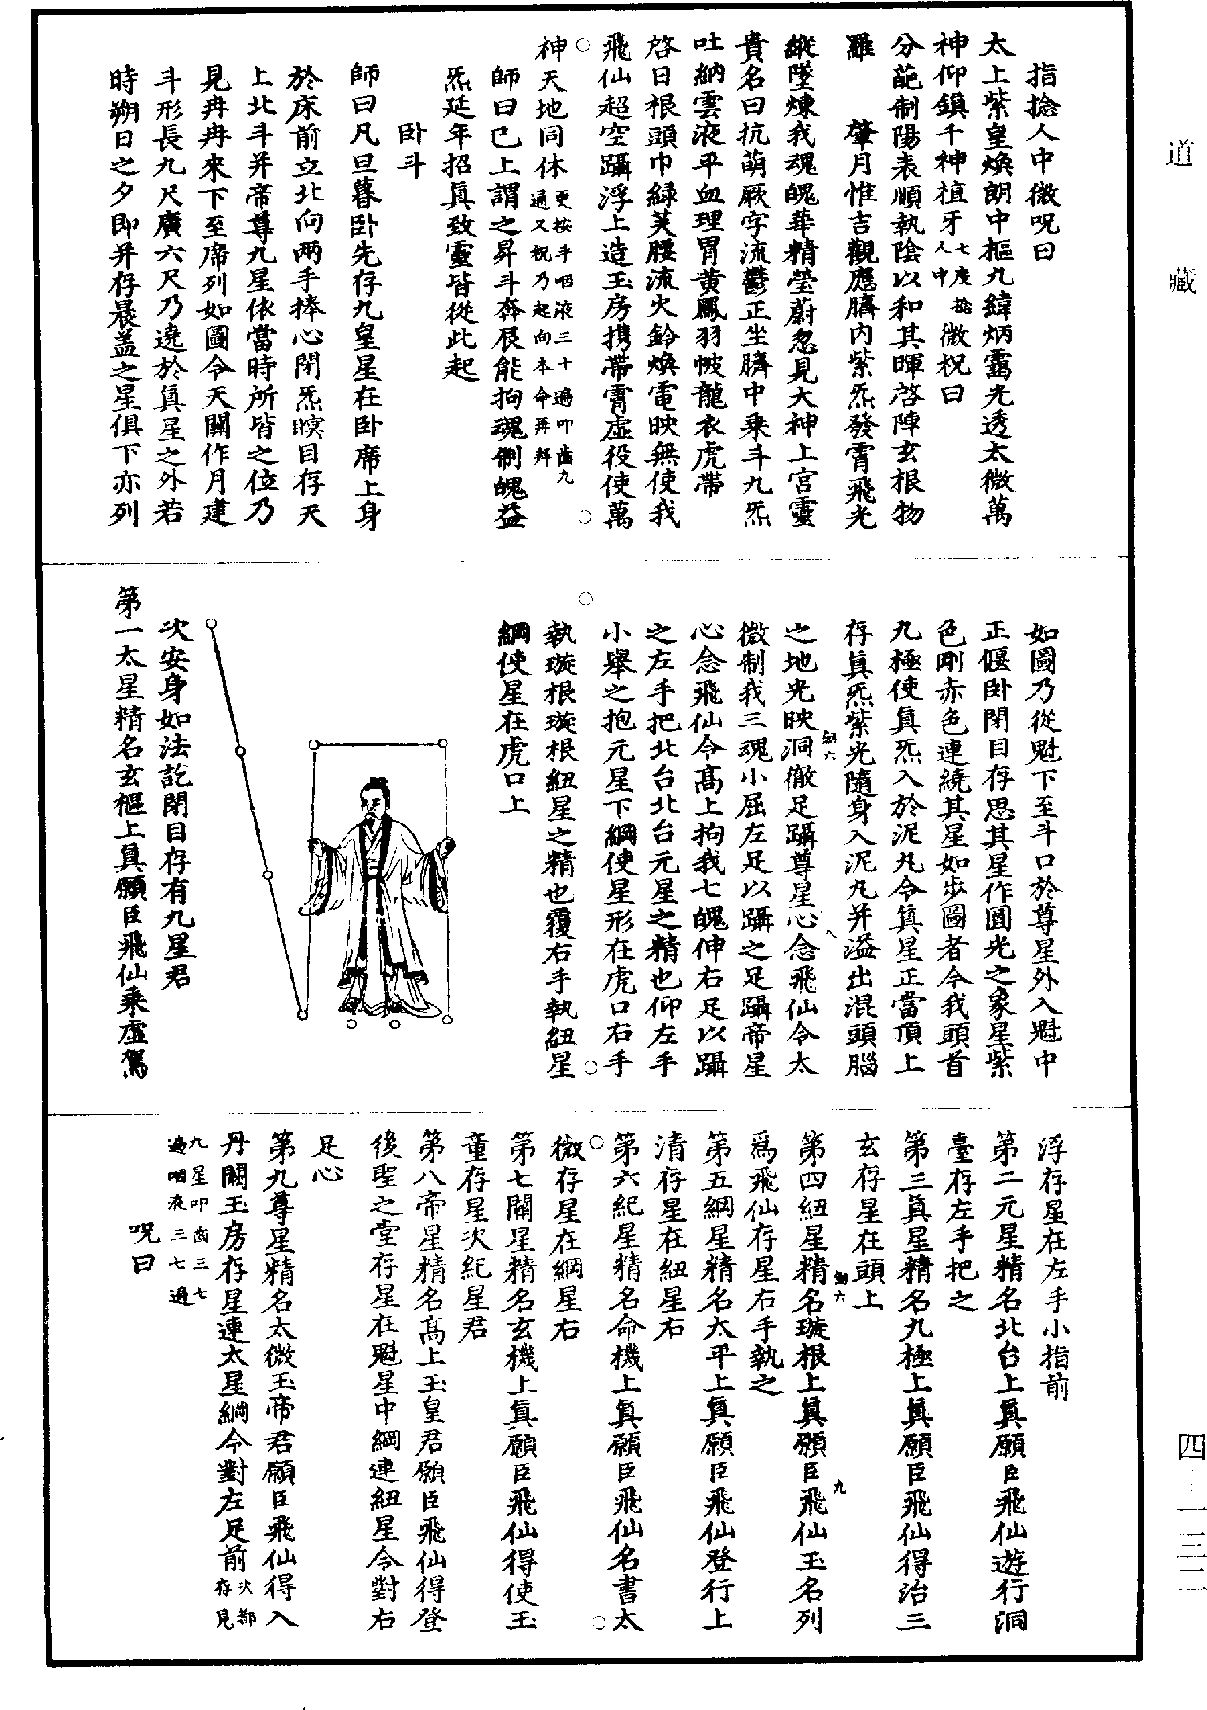 道藏
指捻人中微呪曰
太上紫皇煥朗中樞九緯炳靈光透太微萬
神仰鎮千神植牙七度捻人中微祝曰
分葩制陽表順執陰以和其暉啓陣玄根物
羅肇月惟吉觀應臍內紫炁發霄飛光
縱墜煉我魂魄華精瑩蔚忽見大神上宮靈
貴名曰抗萌厥字流鬱正坐臍中乘斗九炁
吐納雲液平血理胃黃鳳羽帔龍衣虎帶
啓日根頭巾綠芙腰流火鈴煥電映無使我
飛仙超空躡浮上造玉房携帶霄虛役使萬
神天地同休更按手咽液三十過叩齒九通又祝乃起向本命再拜
師曰已上謂之昇斗奔辰能拘魂制魄益
炁延年招真致靈皆從此起
卧斗
師曰凡旦暮卧先存九皇星在卧席上身
於床前立北向兩手捧心閉炁瞑目存天
上北斗并帝尊九星依當時所皆之位乃
見冉冉來下至席列如圖令天關作月建
斗形長九尺廣六尺乃遶於真星之外若
時朔日之夕即并存晨蓋之星俱下亦列
如圖乃從魁下至斗口於尊星外入魁中
正偃卧閉目存思其星作圓光之象星紫
色剛赤色連繞其星如步圖者令我頭首
九極使真炁入於泥丸令真星正當頂上
存真炁紫光隨身入泥丸并溢出混頭腦
之地光映洞徹足躡尊星心念飛仙令太
微制我三魂小屈左足以躡之足躡帝星
心念飛仙令高上拘我七魄伸右足以躡
之左手把北台北台元星之精也仰左手
小舉之抱元星下綱使星形在虎口右手
執璇根璇根紐星之精也覆右手執紐星
綱使星在虎口上
次安身如法訖閉目存有九星君
第一太星精名玄樞上真願臣飛仙乘虛駕
浮存星在左手小指前
第二元星精名北台上真願臣飛仙遊行洞
臺存左手把之
第三真星精名九極上真願臣飛仙得治三
玄存星在頭上
第四紐星精名璇根上真願臣飛仙玉名列
爲飛仙存星右手執之
第五綱星精名太平上真願臣飛仙登行上
清存星在紐星右
第六紀星精名命機上真願臣飛仙名書太
微存星在綱星右
第七關星精名玄機上真願臣飛仙得使玉
童存星次紀星君
第八帝星精名高上玉皇君願臣飛仙得登
後聖之堂存星在魁星中綱連紐星令對右
足心
第九尊星精名太微玉帝君願臣飛仙得入
丹闕玉房存星連太星綱令對左足前次都存見
九星叩齒三七過咽液三七過
呪曰
四一三二